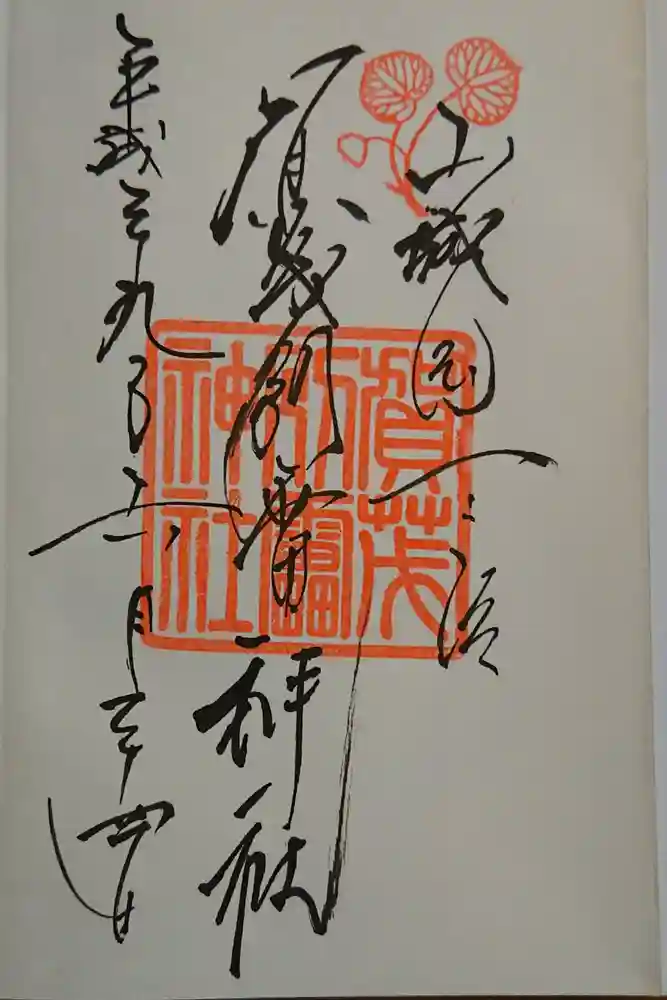 山城国一之宮
賀茂別雷神社
平成二十九年 月二十四日
賀茂
別雷
神社